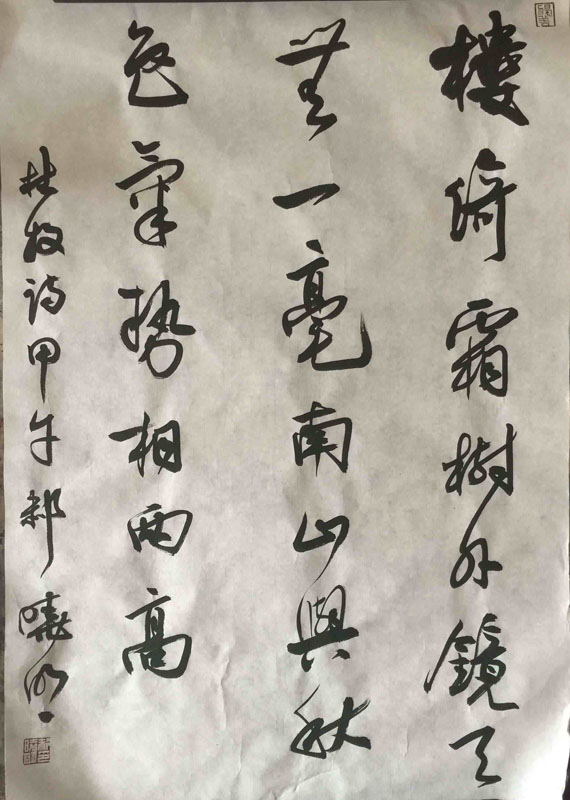 樓倚霜樹外鏡天
無一毫南山與秋
色氣勢相兩高
杜牧詩甲午郝曉明